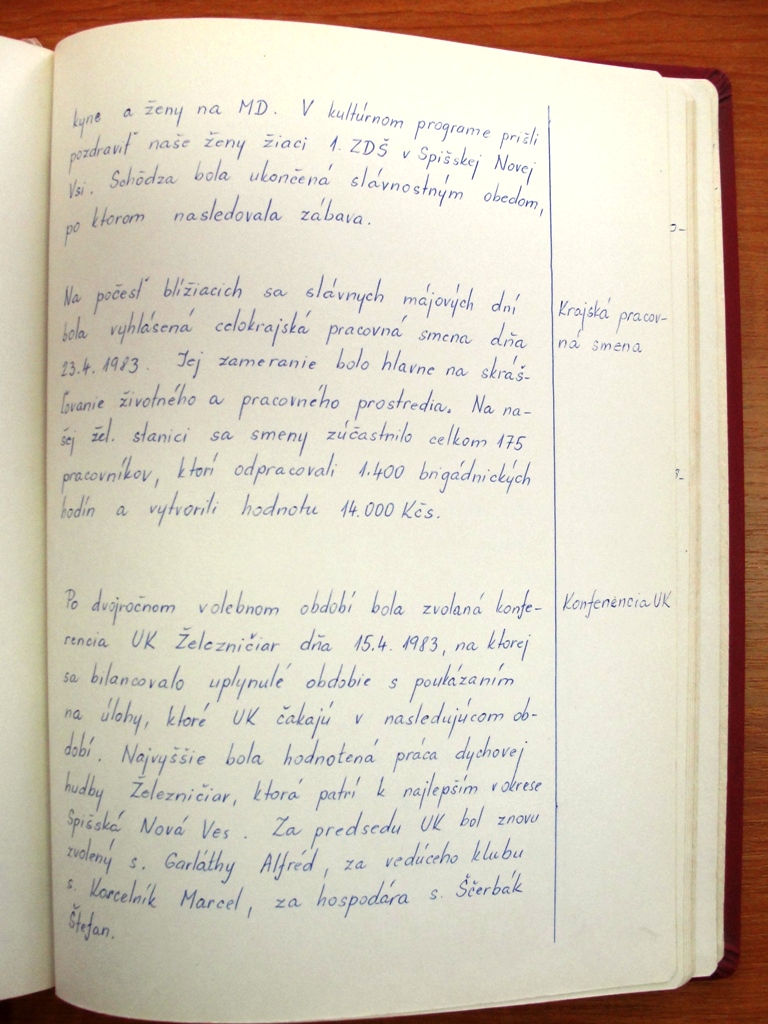 kyne a ženy na MD. V kultúrnom programe prišli
pozdraviť naše ženy žiaci 1. ZDŠ v Spišskej Novej
Vsi. Schôdza bola ukončená slávnostným obedom,
po ktorom nasledovala zábava.
Na počesť blížiacich sa slávnych májových dní
bola vyhlásená celokrajská pracovná smena dňa
23.4.1983. Jej zameranie bolo hlavne na skráš-
ľovanie životného a pracovného prostredia. Na na-
šej žel. stanici sa smeny zúčastnilo celkom 175
pracovníkov, ktorí odpracovali 1.400 brigádnických
hodín a vytvorili hodnotu 14.000 Kčs.
Krajská pracov-
ná smena
Po dvojročnom volebnom období bola zvolaná konfe-
rencia UK Železničiar dňa 15.4.1983, na ktorej
sa bilancovalo uplynulé obdobie s poukázaním
na úlohy, ktoré UK čakajú v nasledujúcom ob-
dobí. Najvyššie bola hodnotená práca dychovej
hudby Železničiar, ktorá patrí k najlepším v okrese
Spišská Nová Ves. Za predsedu UK bol znovu
zvolený s. Garláthy Alfréd, za vedúceho klubu
s. Korcelník Marcel, za hospodára s. Ščerbák
Štefan.
Konferencia UK